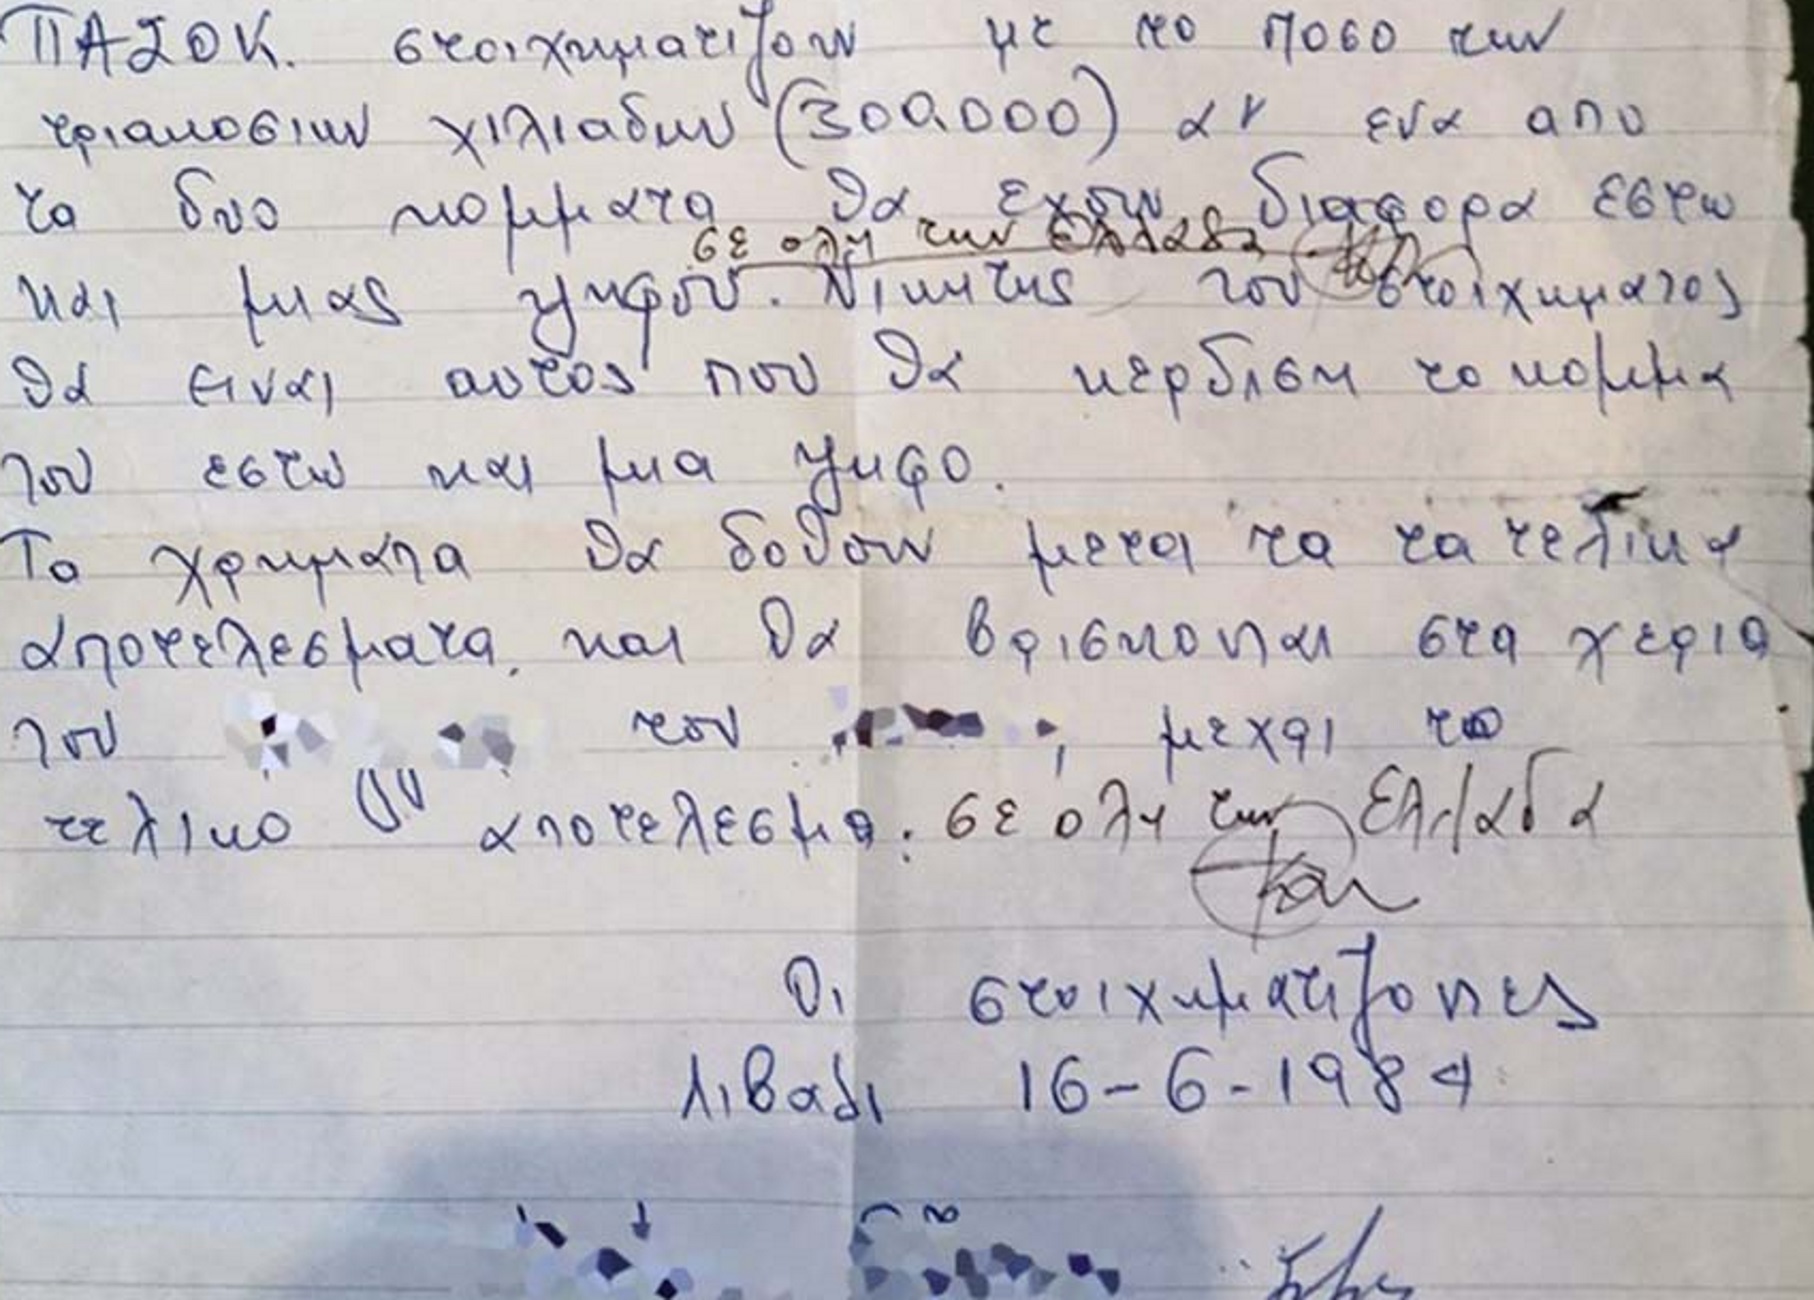 ΠΑΣΟΚ. στοιχηματιζουν με το ποσο των
τριακοσιων χιλιαδων (300.000) αν ενα απο
τα δυο κομματα θα εχουν διαφορα εστω
σε ολη την Ελλαδα
και μιας ψηφου. Νικητης του στοιχηματος
θα ειναι αυτος που θα κερδιση το κομμα
του εστω και μια ψηφο.
Τα χρηματα θα δοθουν μετα τα τα τελικα
αποτελεσματα. και θα βρισκονται στα χερια
του του , μεχρι το
τελικο αποτελεσμα. σε ολη την Ελλαδα
Οι στοιχηματιζοντες
Λιβαδι 16-6-1984